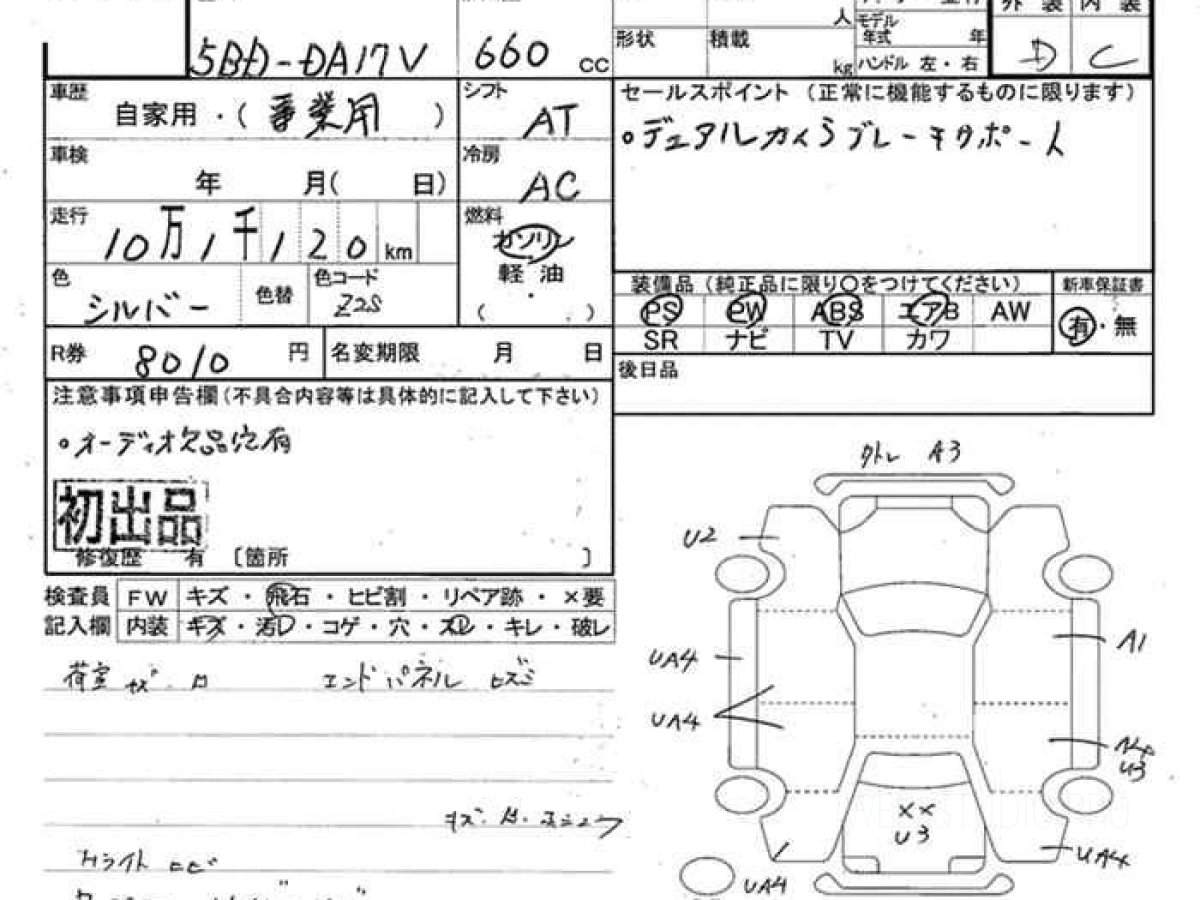 人
モデル
年式 年
外装 内装
5BD-DA17V
660 cc
形状
積載
kg
ハンドル 左・右
D C
車歴
自家用 ・( 事業用 )
シフト
AT
セールスポイント (正常に機能するものに限ります)
。デュアルカメラブレーキサポート
車検
年 月( 日)
冷房
AC
走行
10万1千120km
燃料
ガソリン
軽油
( ・ )
色
シルバー
色替
色コード
Z2S
装備品(純正品に限り〇をつけてください)
新車保証書
PS PW ABS エアB AW
有・無
SR ナビ TV カワ
R券
8010 円
名変期限 月 日
後日品
注意事項申告欄(不具合内容等は具体的に記入して下さい)
。オーディオ欠品穴有
初出品
修復歴 有 〔箇所 〕
検査員 FW キズ・飛石・ヒビ割・リペア跡・×要
記入欄 内装 キズ・汚レ・コゲ・穴・スレ・キレ・破レ
荷室
エンドパネル ヒズミ
A3
U2
UA4
A1
UA4
U3
××
U3
UA4
UA4